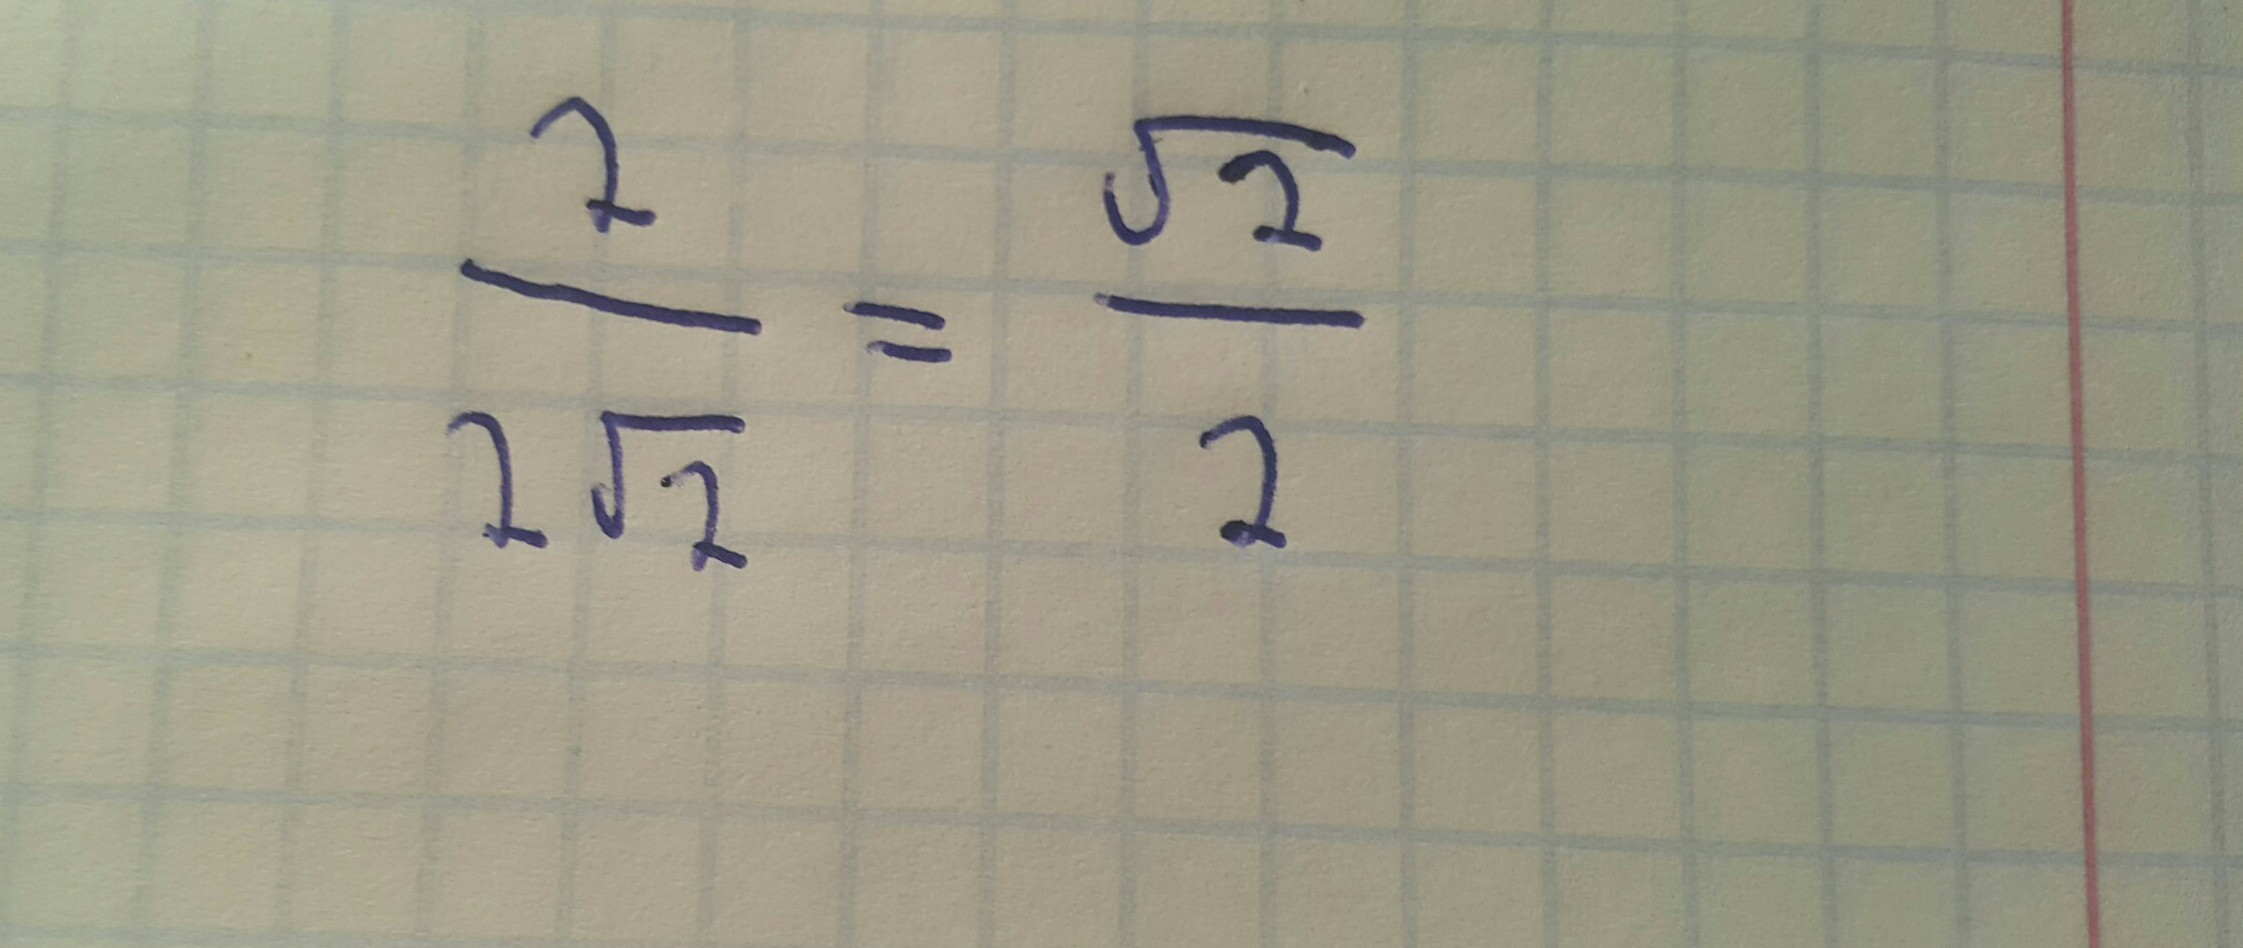 2/2√2 = √2/2